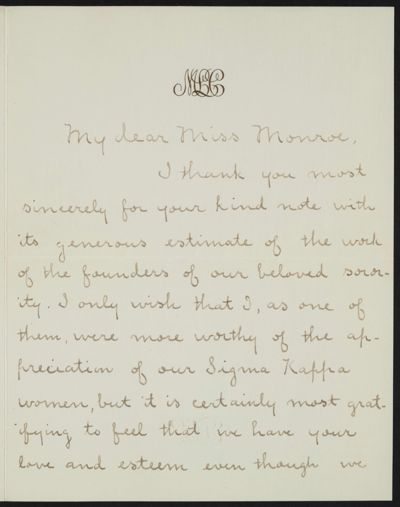 My dear Miss Monroe,
I thank you most
sincerely for your kind note with
its generous estimate of the work
of the founders of our beloved soror-
ity. I only wish that I, as one of
them, were more worthy of the ap-
preciation of our Sigma Kappa
women, but it is certainly most grat-
ifying to feel that we have your
love and esteem even though we